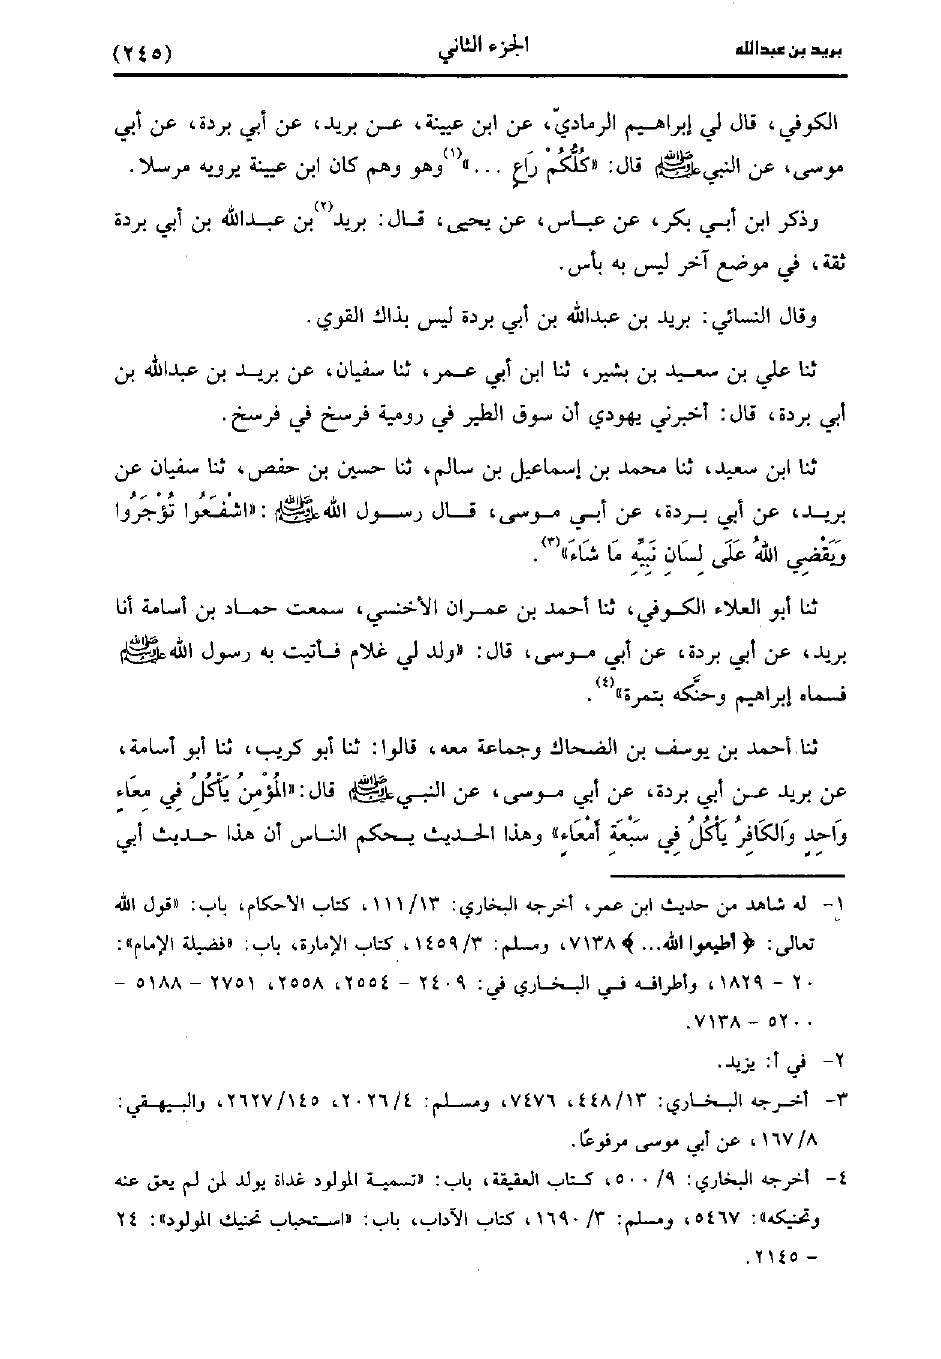 بريد بن عبدالله
الجزء الثاني
(٢٤٥)
الكوفي، قال لي إبراهيم الرماديّ، عن ابن عيينة، عن بريد، عن أبي بردة، عن أبي
موسى، عن النبي ﷺ قال: «كُلُّكُمْ رَاعٍ ...»(١) وهو وهم كان ابن عيينة يرويه مرسلا.
وذكر ابن أبي بكر، عن عباس، عن يحيى، قال: بريد(٢) بن عبدالله بن أبي بردة
ثقة، في موضع آخر ليس به بأس.
وقال النسائي: بريد بن عبدالله بن أبي بردة ليس بذاك القوي.
ثنا علي بن سعيد بن بشير، ثنا ابن أبي عمر، ثنا سفيان، عن بريد بن عبدالله بن
أبي بردة، قال: أخبرني يهودي أن سوق الطير في رومية فرسخ في فرسخ.
ثنا ابن سعيد، ثنا محمد بن إسماعيل بن سالم، ثنا حسين بن حفص، ثنا سفيان عن
بريد، عن أبي بردة، عن أبي موسى، قال رسول الله ﷺ: «اشْفَعُوا تُؤْجَرُوا
وَيَقْضِي اللهُ عَلَى لِسَانِ نَبِيِّهِ مَا شَاءَ»(٣).
ثنا أبو العلاء الكوفي، ثنا أحمد بن عمران الأخنسي، سمعت حماد بن أسامة أنا
بريد، عن أبي بردة، عن أبي موسى، قال: «ولد لي غلام فأتيت به رسول الله ﷺ
فسماه إبراهيم وحنَّكه بتمرة»(٤).
ثنا أحمد بن يوسف بن الضحاك وجماعة معه، قالوا: ثنا أبو كريب، ثنا أبو أسامة،
عن بريد عن أبي بردة، عن أبي موسى، عن النبي ﷺ قال: «المُؤْمِنُ يَأْكُلُ فِي مِعَاءٍ
وَاحِدٍ وَالكَافِرُ يَأْكُلُ فِي سَبْعَةِ أَمْعَاءٍ» وهذا الحديث يحكم الناس أن هذا حديث أبي
١- له شاهد من حديث ابن عمر، أخرجه البخاري: ١١١/١٣، كتاب الأحكام، باب: «قول الله
تعالى: ﴿أطيعوا الله...﴾ ٧١٣٨، ومسلم: ١٤٥٩/٣، كتاب الإمارة، باب: «فضيلة الإمام»:
٢٠ - ١٨٢٩، وأطرافه في البخاري في: ٢٤٠٩ - ٢٥٥٤، ٢٥٥٨، ٢٧٥١ - ٥١٨٨ -
٥٢٠٠ - ٧١٣٨.
٢- في أ: يزيد.
٣- أخرجه البخاري: ٤٤٨/١٣، ٧٤٧٦، ومسلم: ٢٠٢٦/٤، ٢٦٢٧/١٤٥، والبيهقي:
١٦٧/٨، عن أبي موسى مرفوعًا.
٤- أخرجه البخاري: ٥٠٠/٩، كتاب العقيقة، باب: «تسمية المولود غداة يولد لمن لم يعق عنه
وتحنيكه»: ٥٤٦٧، ومسلم: ١٦٩٠/٣، كتاب الآداب، باب: «استحباب تحنيك المولود»: ٢٤
- ٢١٤٥.